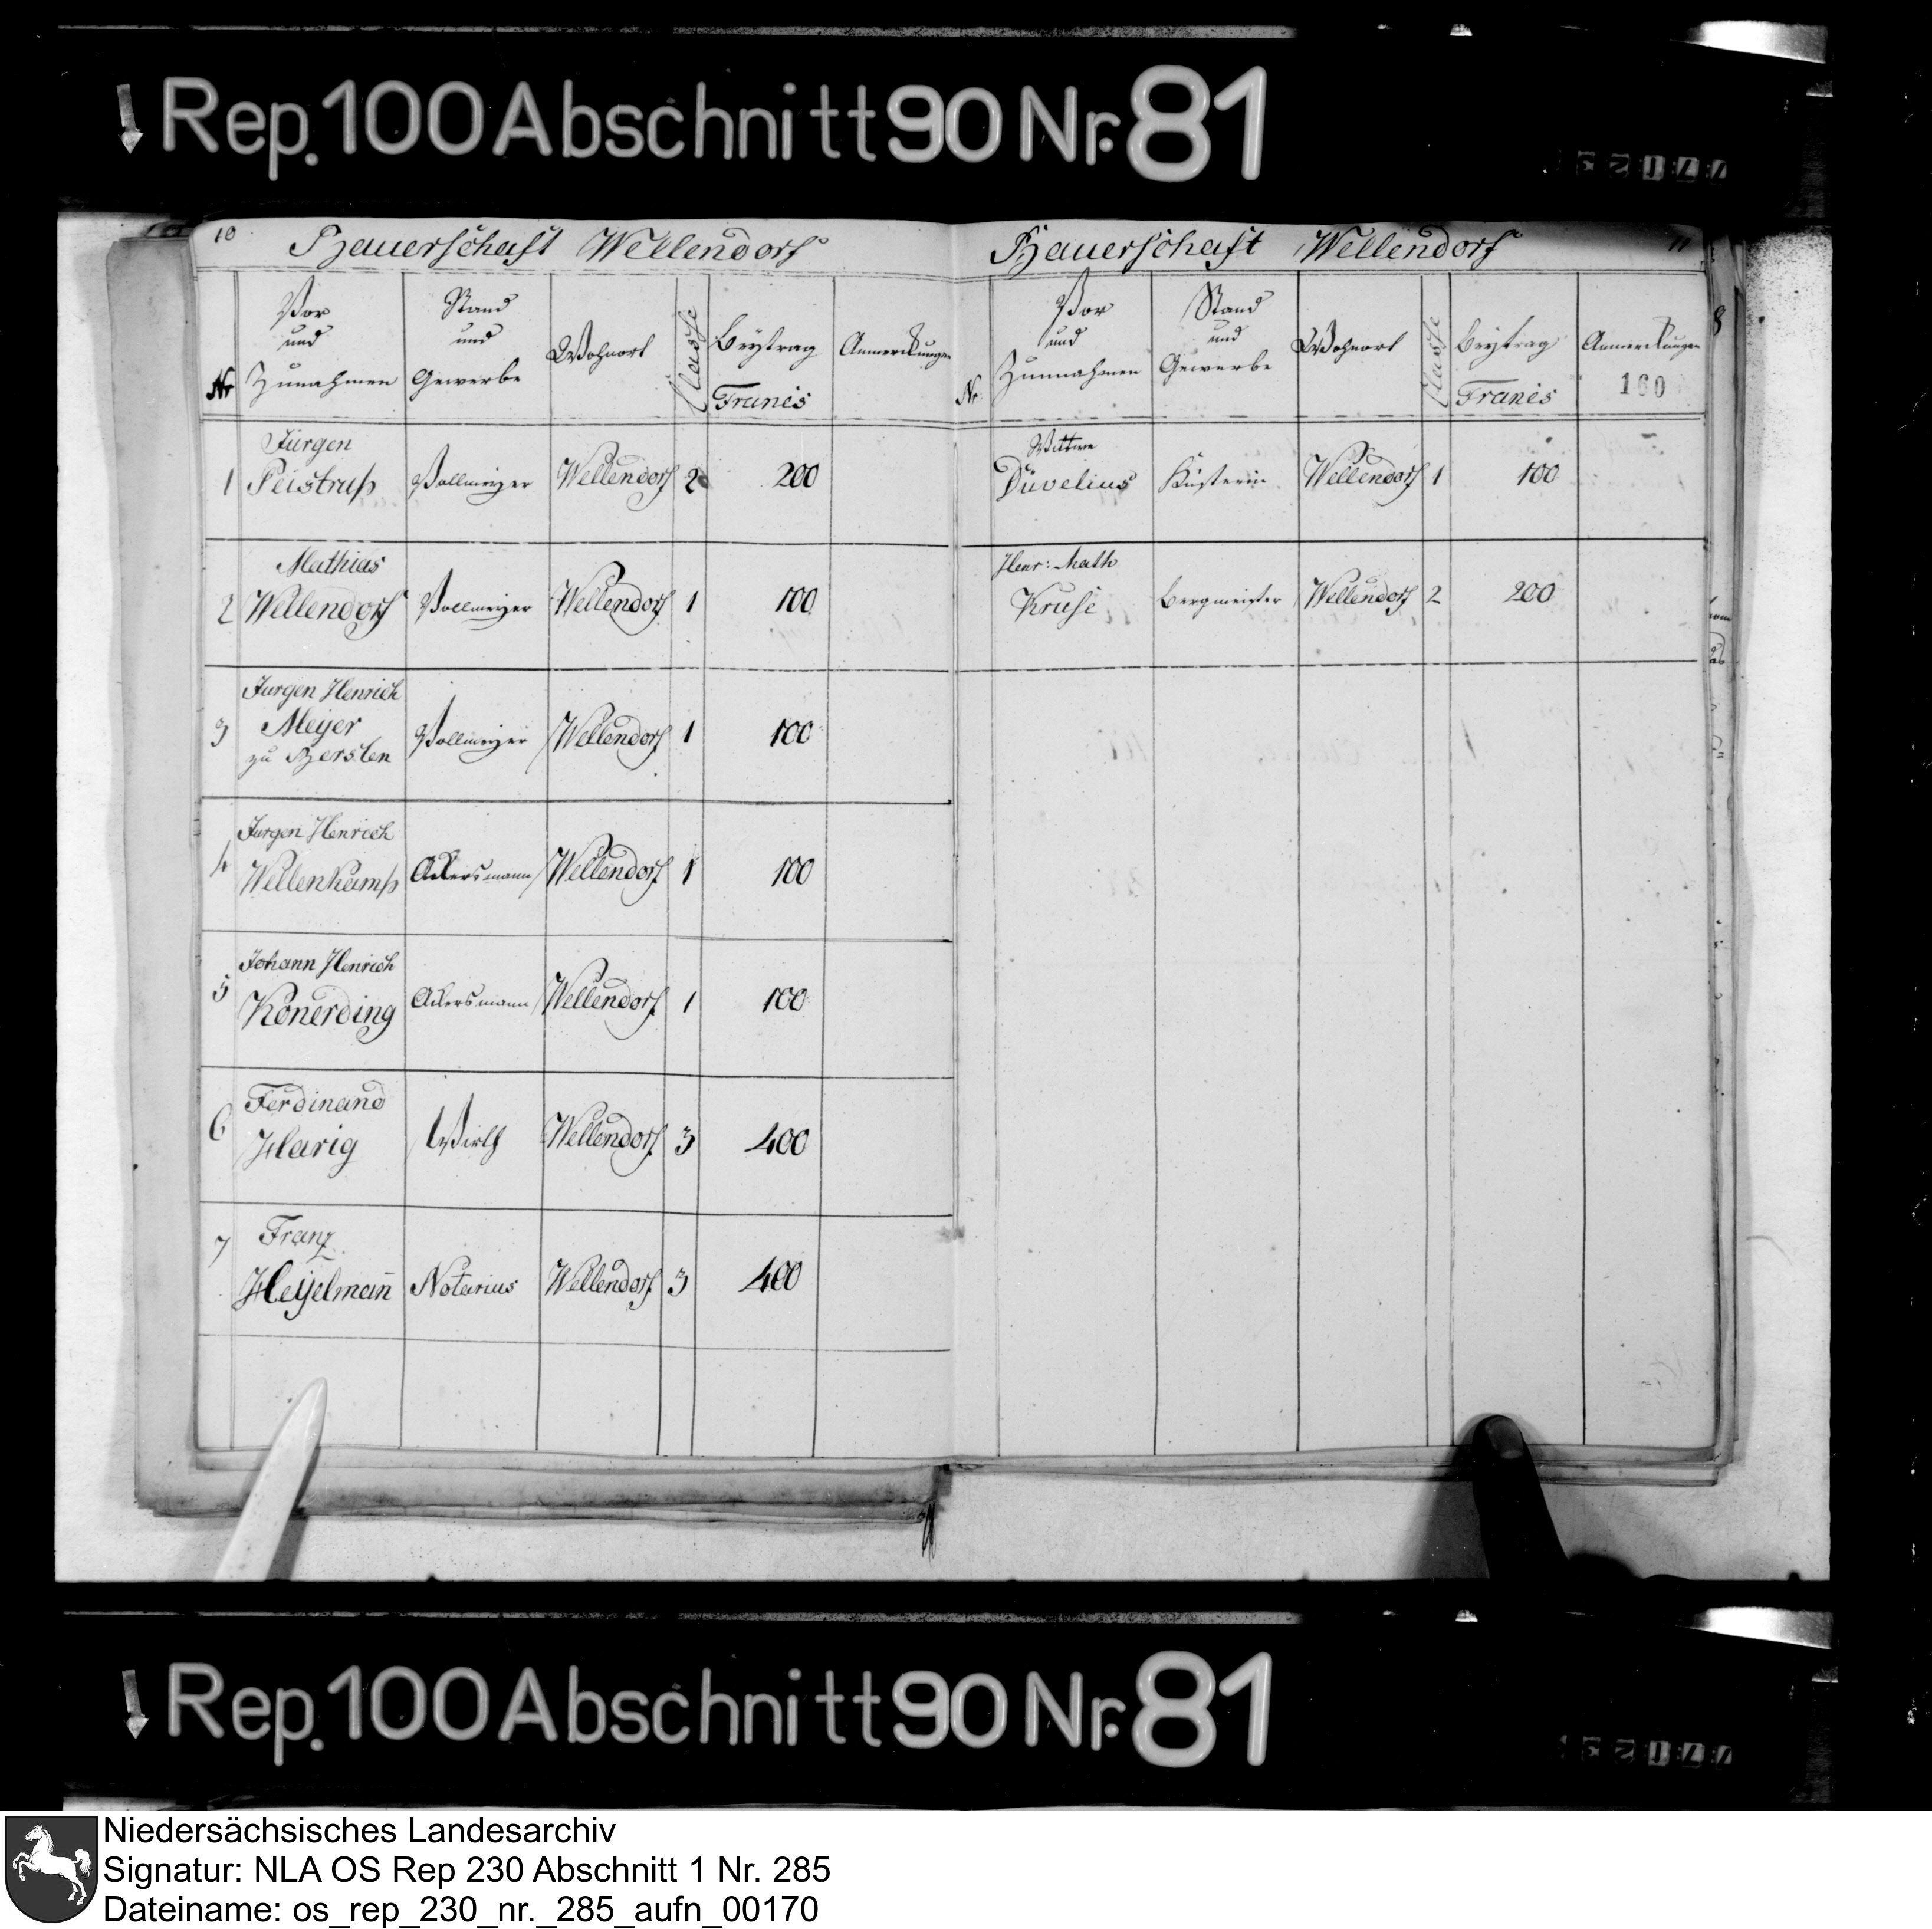 Rep. 100 Abschnitt 90 Nr. 81
10 Bauerschaft Wellendorf
Nr
Vor
und
Zunahmen
Stand
und
Gewerbe
Wohnort
Classe
Beytrag
Francs
Anmerckungen
1 Jürgen
Peistrup Vollmeyer Wellendorf 2 200
2 Mathias
Wellendorf Vollmeyer Wellendorf 1 100
3 Jurgen Henrich
Meyer
zu Bersten Vollmeyer Wellendorf 1 100
4 Jurgen Henrich
Wellenkamp Ackersmann Wellendorf 1 100
5 Johann Henrich
Konerding Ackersmann Wellendorf 1 100
6 Ferdinand
Harig Wirth Wellendorf 3 400
7 Franz
Heyelmañ Notarius Wellendorf 3 400
Bauerschaft Wellendorf 11
Nr.
Vor
und
Zunnahmen
Stand
und
Gewerbe
Wohnort
Classe
Beytrag
Francs
Anmerckungen
160
Wittwe
Düvelius Küsterin Wellendorf 1 100
Henr: Math
Kruse Bergmeister Wellendorf 2 200
8
Rep. 100 Abschnitt 90 Nr. 81
Niedersächsisches Landesarchiv
Signatur: NLA OS Rep 230 Abschnitt 1 Nr. 285
Dateiname: os_rep_230_nr._285_aufn_00170